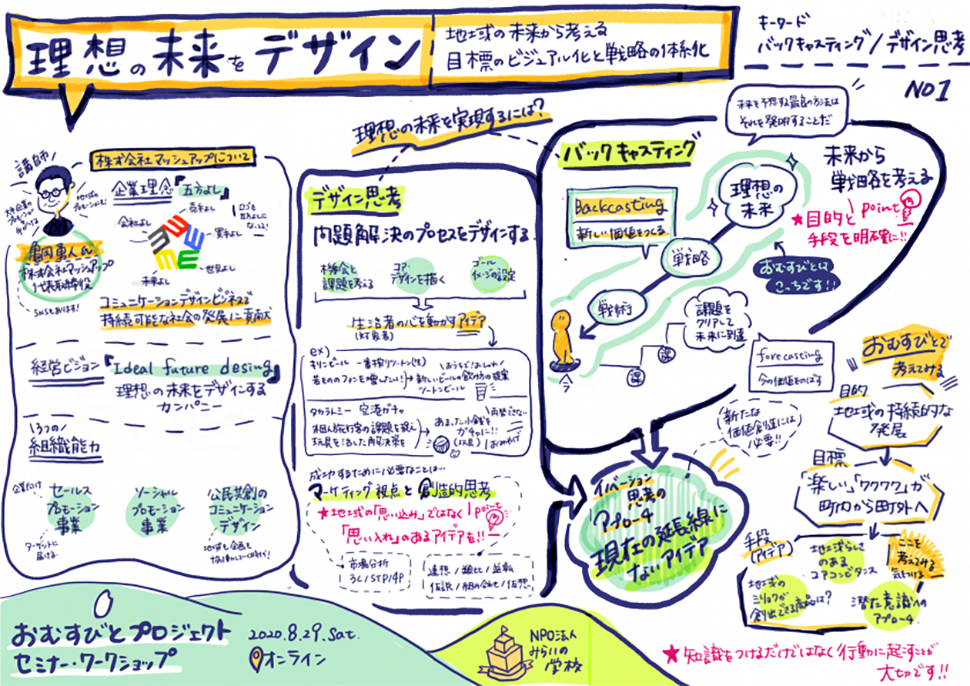 理想の未来をデザイン
地域の未来から考える
目標のビジュアル化と戦略の体系化
キーワード
バックキャスティング/デザイン思考
NO1
講師
亀岡勇人さん
株式会社マッシュアップ
代表取締役
SNSもあります!
株式会社マッシュアップについて
企業理念『五方よし』
売手よし
会社よし
買手よし
世間よし
未来よし
コミュニケーションデザインビジネスで
持続可能な社会の発展に貢献
経営ビジョン
『Ideal future desing
理想の未来をデザインする
カンパニー
3つの
組織能力
企業向け
セールス
プロモーション
事業
ターゲットに
届ける
ソーシャル
プロモーション
事業
公民共創の
コミュニケーション
デザイン
理想の未来を実現するには?
デザイン思考
問題解決のプロセスをデザインする
機会と
課題を考える
コア
デザインを描く
ゴール
イメージの設定
生活者の心を動かすアイデア
ex)
キリンビール
一番搾りツートン(生)
若もののファンを増やしたい!
新しいビールの飲み方の提案
ツートンビール
タカラトミー 空港ガチャ
あまった小銭を
ガチャに!!
成功するために必要なことは…
マーケティング視点と創造的思考
★地域の「思い込み」ではなく
point
「思い入れ」のあるアイデアを!!
市場分析
3C/STP/4P
連想/類比/逆転
仮説/組み合わせ/仮想
バックキャスティング
未来を予想する最良の方法は
それを発明することだ
Backcasting
新しい価値をつくる
理想の
未来
戦略
戦術
今
未来から
戦略を考える
★目的と
point
手段を明確に!!
おむすびとは
こっちです!!
課題を
クリアして
未来に到達
課
課
forecasting
今の価値をのばす
新たな
価値創造には
必要!!
イノベーション
思考の
アプローチ
現在の延長線に
ないアイデア
おむすびとで
考えてみる
目的
地域の持続的な
発展
目標
楽しい、「ワクワク」が
町内から町外へ
手段
(アイデア)
地域らしさ
のある
コアコンピタンス
ここを
考えてみる
地域の
ミリョクが
創出できる商品は?
潜在意識への
アプローチ
★知識をつけるだけではなく行動に起すことが
大切です!!
おむすびとプロジェクト
セミナー・ワークショップ
2020.8.29.Sat.
オンライン
NPO法人
みらいの
学校